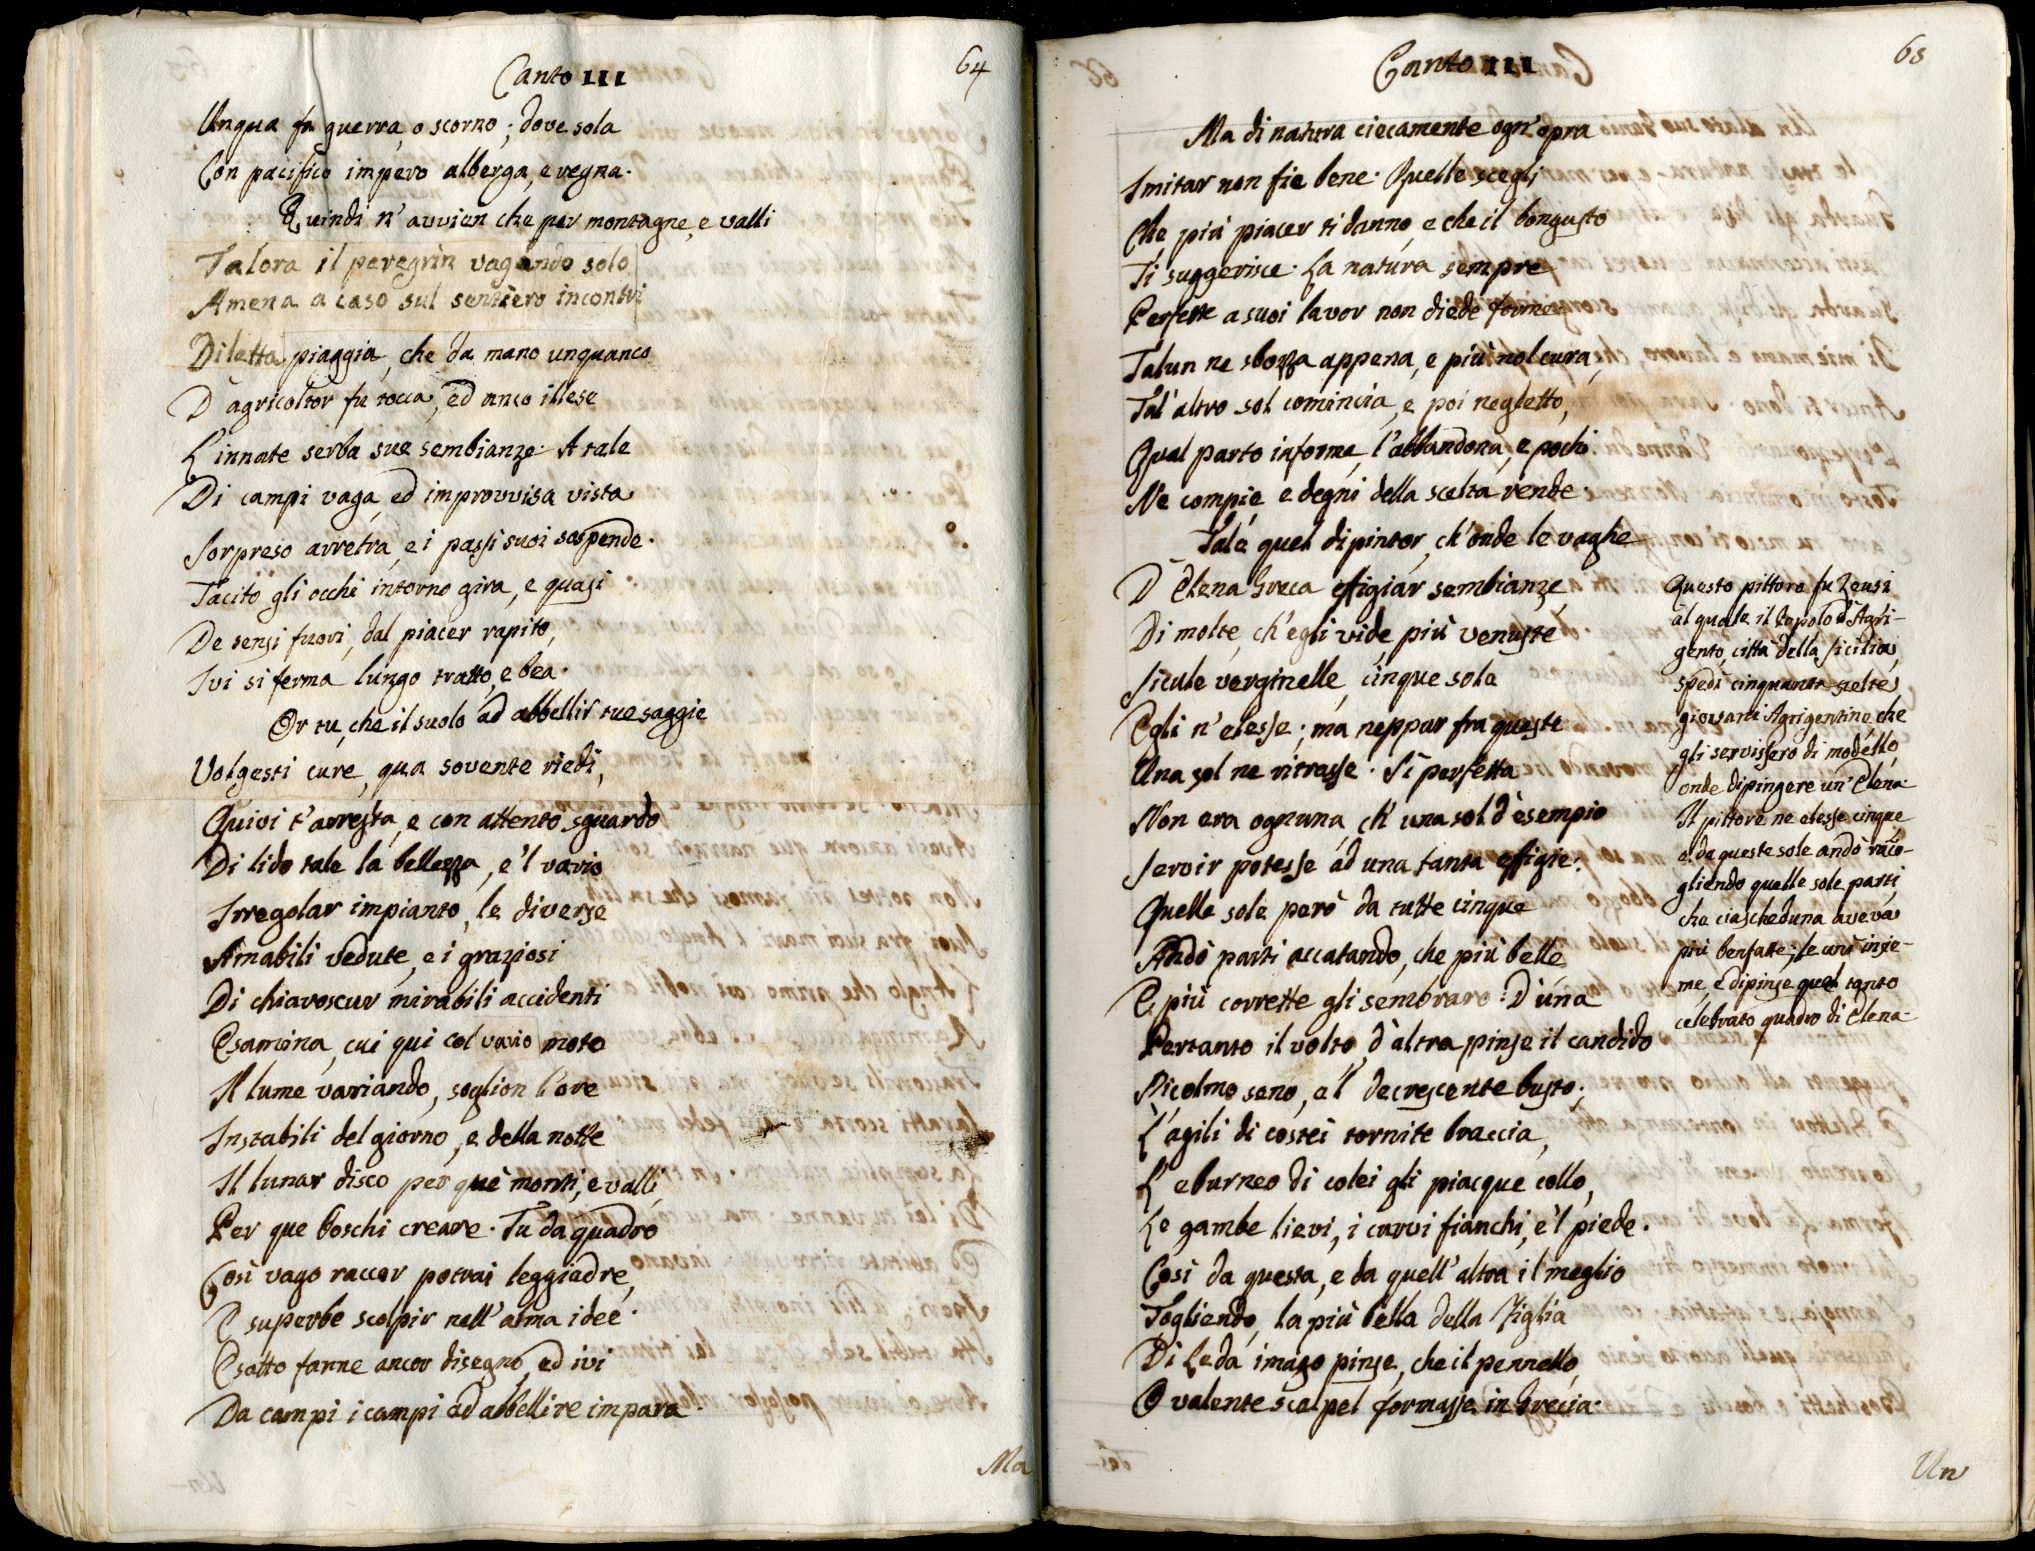 Canto III
64
Unqua fa guerra, o scorno; dove sola
Con pacifico impero alberga, e regna.
Quindi n' avvien che per montagne, e valli
Talora il peregrin vagando solo
Amena a caso sul sentiero incontri
Diletta piaggia, che da mano unquanco
D' agricoltor fu tocca, ed anco illese
L' innate serba sue sembianze. A tale
Di campi vaga, ed improvvisa vista
Sorpreso arretra, e i passi suoi sospende.
Tacito gli occhi intorno gira, e quasi
De sensi fuori, dal piacer rapito,
Ivi si ferma lungo tratto, e bea.
Or tu, che il suolo ad abbellir tue saggie
Volgesti cure, qua sovente riedi,
Quivi t' arresta, e con attento sguardo
Di lido tale la bellezza, e 'l vario
Irregolar impianto, le diverse
Amabili vedute, e i graziosi
Di chiaroscur mirabili accidenti
Esamina, cui qui col vario moto
Il lume variando, soglion l' ore
Instabili del giorno, e della notte
Il lunar disco per que' monti, e valli,
Per que boschi creare. Tu da quadro
Così vago raccor potrai leggiadre,
E superbe scolpir nell' alma idee.
Esatto farne ancor disegno, ed ivi
Da campi i campi ad abbellire impara.
Ma
Canto III
65
Ma di natura ciecamente ogn' opra
Imitar non fie bene. Quelle scegli
Che più piacer ti danno, e che il bongusto
Ti suggerisce. La natura sempre
Perfette a suoi lavor non diede forme
Talun ne sbozza appena, e più nol cura,
Tal' altro sol comincia, e poi negletto,
Qual parto informe, l' abbandona, e pochi
Ne compie, e degni della scelta rende.
Tale quel dipintor, ch' onde le vaghe
D' Elena Greca effigiar sembianze
Di molte, ch' egli vide, più venuste
Sicule verginelle, cinque sole
Egli n' elesse; ma neppur fra queste
Una sol ne ritrasse. Sì perfetta
Non era ognuna, ch' una sol d' esempio
Servir potesse ad una tanta effigie.
Quelle sole però da tutte cinque
Andò parti accatando, che più belle
E più corrette gli sembraro. D' una
Pertanto il volto, d' altra pinse il candido
Ricolmo seno, e 'l decrescente busto;
L' agili di costei tornite braccia,
L' eburneo di colei gli piacque collo,
Le gambe lievi, i curvi fianchi, e 'l piede.
Così da questa, e da quell' altra il meglio
Togliendo, la più bella della Figlia
Di Leda imago pinse, che il pennello,
O valente scalpel formasse in Grecia.
Questo pittore fu Zeusi
al quale il Popolo d' Agri-
gento, città della Sicilia,
spedì cinquanta scelte
giovani Agrigentine, che
gli servissero di modello,
onde dipingere un' Elena.
Il pittore ne elesse cinque
e da queste sole andò raco-
gliendo quelle sole parti,
che ciascheduna aveva
più benfatte; le unì insie-
me, e dipinse quel tanto
celebrato quadro di Elena.
Un